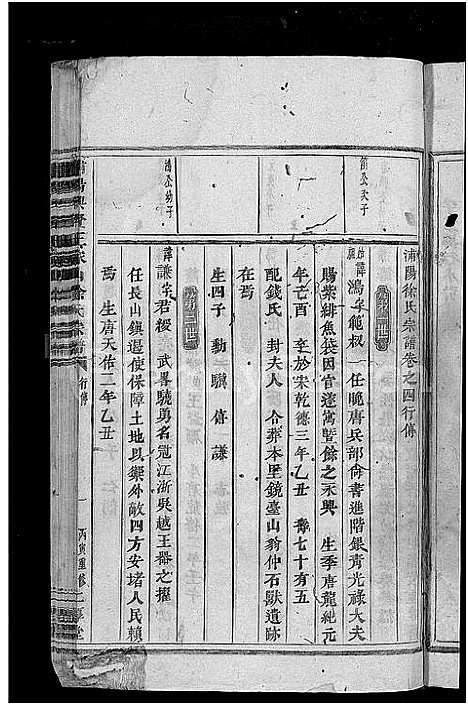 浦陽徐氏宗譜卷之四行傳
簡公次子
第二世
始祖諱鴻字範叔 一任晚唐兵部尙書進階銀青光祿大夫
賜紫緋魚袋因官遂寓暨餘之永興 生季唐龍紀元
年己酉 卒於宋乾德三年乙丑 夀七十有五
配錢氏 封夫人 合葬本里鏡臺山翁仲石獸遺跡
在焉
生四子 勳 驥 脩 謙
簡公幼子
第三世
諱謙字君稷 武畧驍勇名冠江浙吳越王器之擢
任長山鎮遏使保障土地以禦外敵四方安堵人民賴
焉 生唐天佑二年乙丑
徐氏宗譜 行傳 一 丙 重修